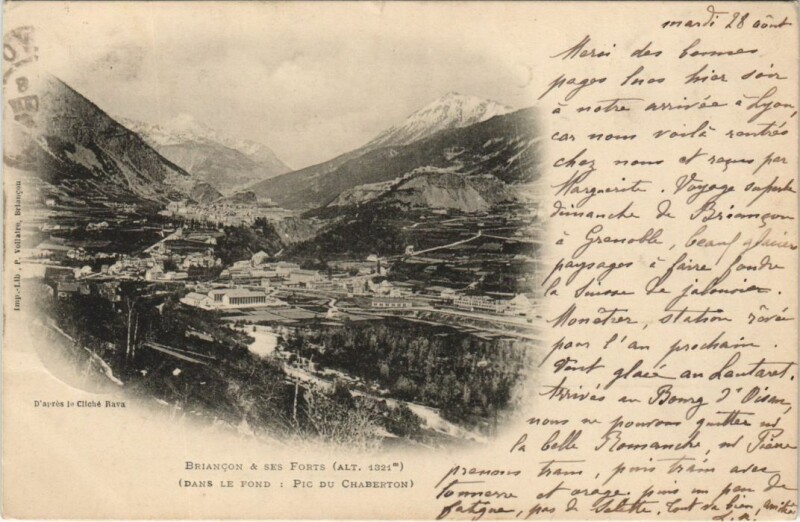 mardi 28 août
Merci des bonnes
pages lues hier soir
à notre arrivée à Lyon,
car nous voilà rentrés
chez nous et reçus par
Marguerite. Voyage superbe
dimanche de Briançon
à Grenoble, beaux glaciers
paysages à faire fondre
la Suisse de jalousie.
Monêtier, station rêvée
pour l'an prochain.
Vent glacé au Lautaret.
Arrivés au Bourg d'Oisans,
nous ne pouvons quitter ni
la belle Romanche, ni Pierre
prenons tram, puis train avec
tonnerre et orage, puis un peu de
fatigue, pas de Salette. Tout va bien, amitiés
Imp.-Lib., P. Vollaire, Briançon
D'après le Cliché Rava
BRIANÇON & SES FORTS (ALT. 1321m)
(DANS LE FOND : PIC DU CHABERTON)